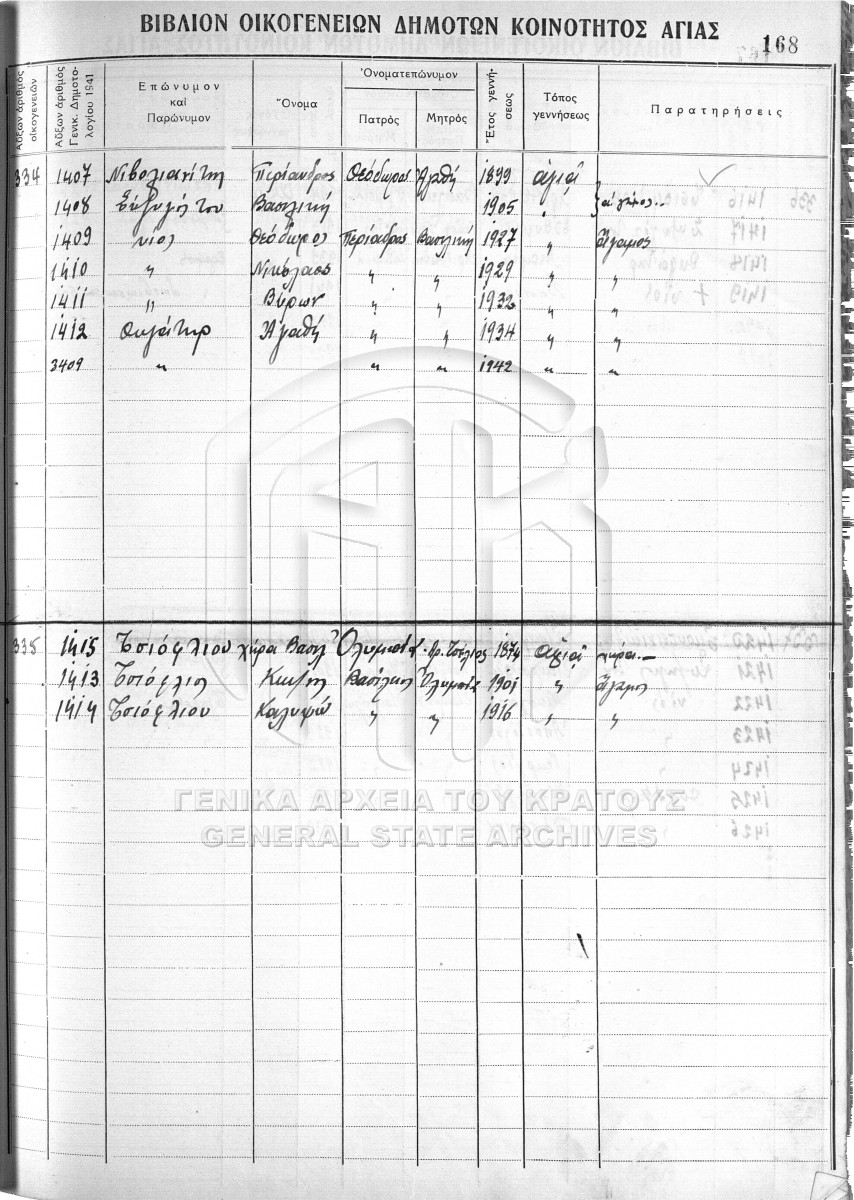 ΒΙΒΛΙΟΝ ΟΙΚΟΓΕΝΕΙΩΝ ΔΗΜΟΤΩΝ ΚΟΙΝΟΤΗΤΟΣ ΑΓΙΑΣ
168
Αὔξων ἀριθμὸς οἰκογενειῶν
Αὔξων ἀριθμὸς Γενικ. Δημοτολογίου 1941
Ἐπώνυμον καὶ Παρώνυμον
Ὄνομα
Ὀνοματεπώνυμον
Πατρὸς
Μητρὸς
Ἔτος γεννήσεως
Τόπος γεννήσεως
Παρατηρήσεις
334 1407 Περίανδρος Θεόδωρος Ἀγαθή 1899 ἁγιᾶ
1408 Σύζυγός του Βασιλική 1905 "
1409 υιος Θεόδωρος Περίανδρος Βασιλική 1927 " ἄγαμος
1410 " Νικόλαος " " 1929 " "
1411 " Βύρων " " 1932 " "
1412 Θυγάτηρ Ἀγαθή " " 1934 " "
3409 " " " 1942 " "
335 1415 Τσιόφλιου χήρα Βασιλ Ὀλυμπία 1874 ἁγιᾶ χήρα
1413 Τσιόφλιος Κωστής Βασίλειος Ὀλυμπία 1901 " ἄγαμος
1414 Τσιόφλιου Καλυψώ " " 1916 " "
ΓΕΝΙΚΑ ΑΡΧΕΙΑ ΤΟΥ ΚΡΑΤΟΥΣ
GENERAL STATE ARCHIVES